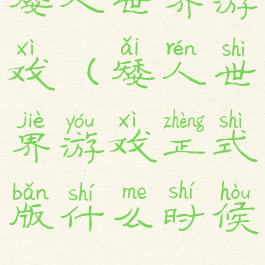 矮人世界游
xì ǎi rén shì
戏（矮人世
jiè yóu xì zhèng shì
界游戏正式
bǎn shí me shí hòu
版什么时候